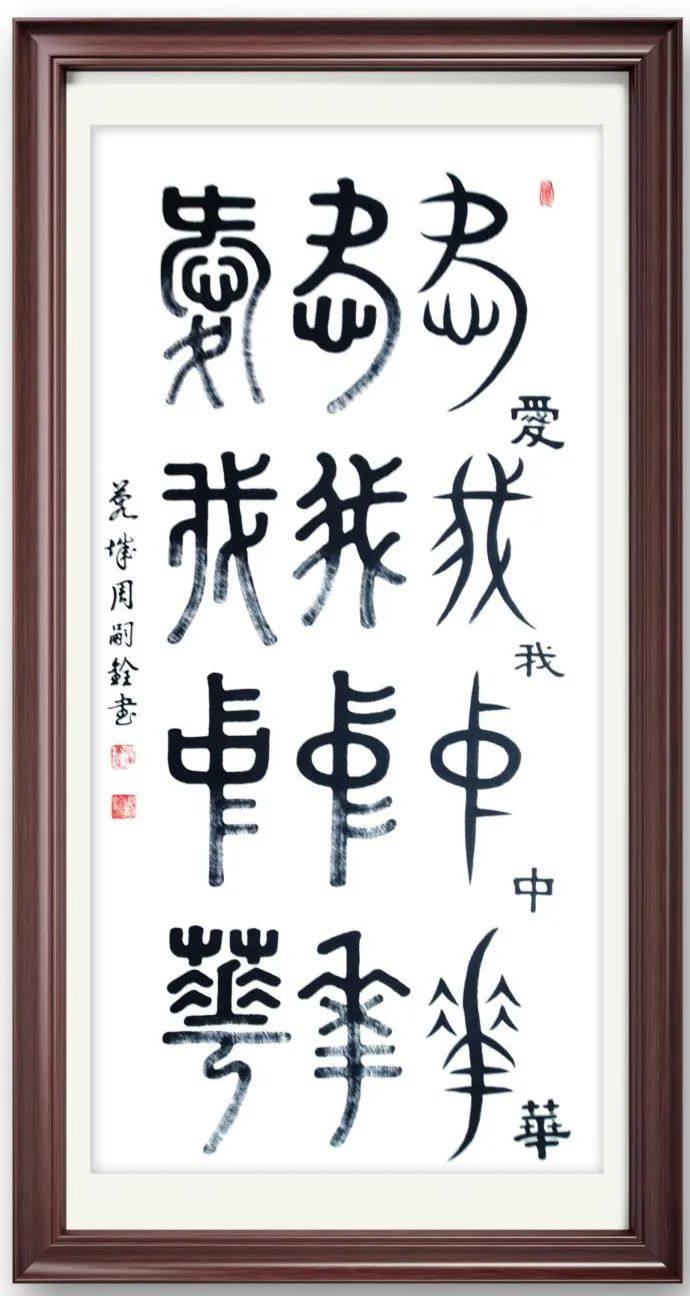 愛我中華
愛我中華
愛我中華
愛我中華
莞城周嗣銓書